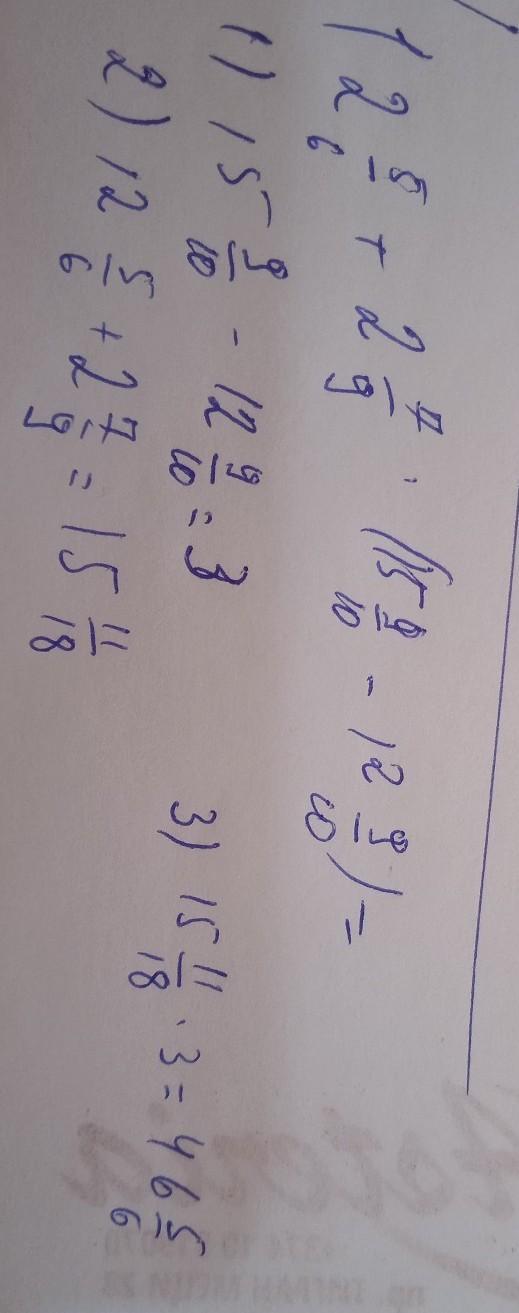 12 5/6 + 2 7/9 · (15 9/10 - 12 9/10) =
1) 15 9/10 - 12 9/10 = 3
2) 12 5/6 + 2 7/9 = 15 11/18
3) 15 11/18 · 3 = 46 5/6